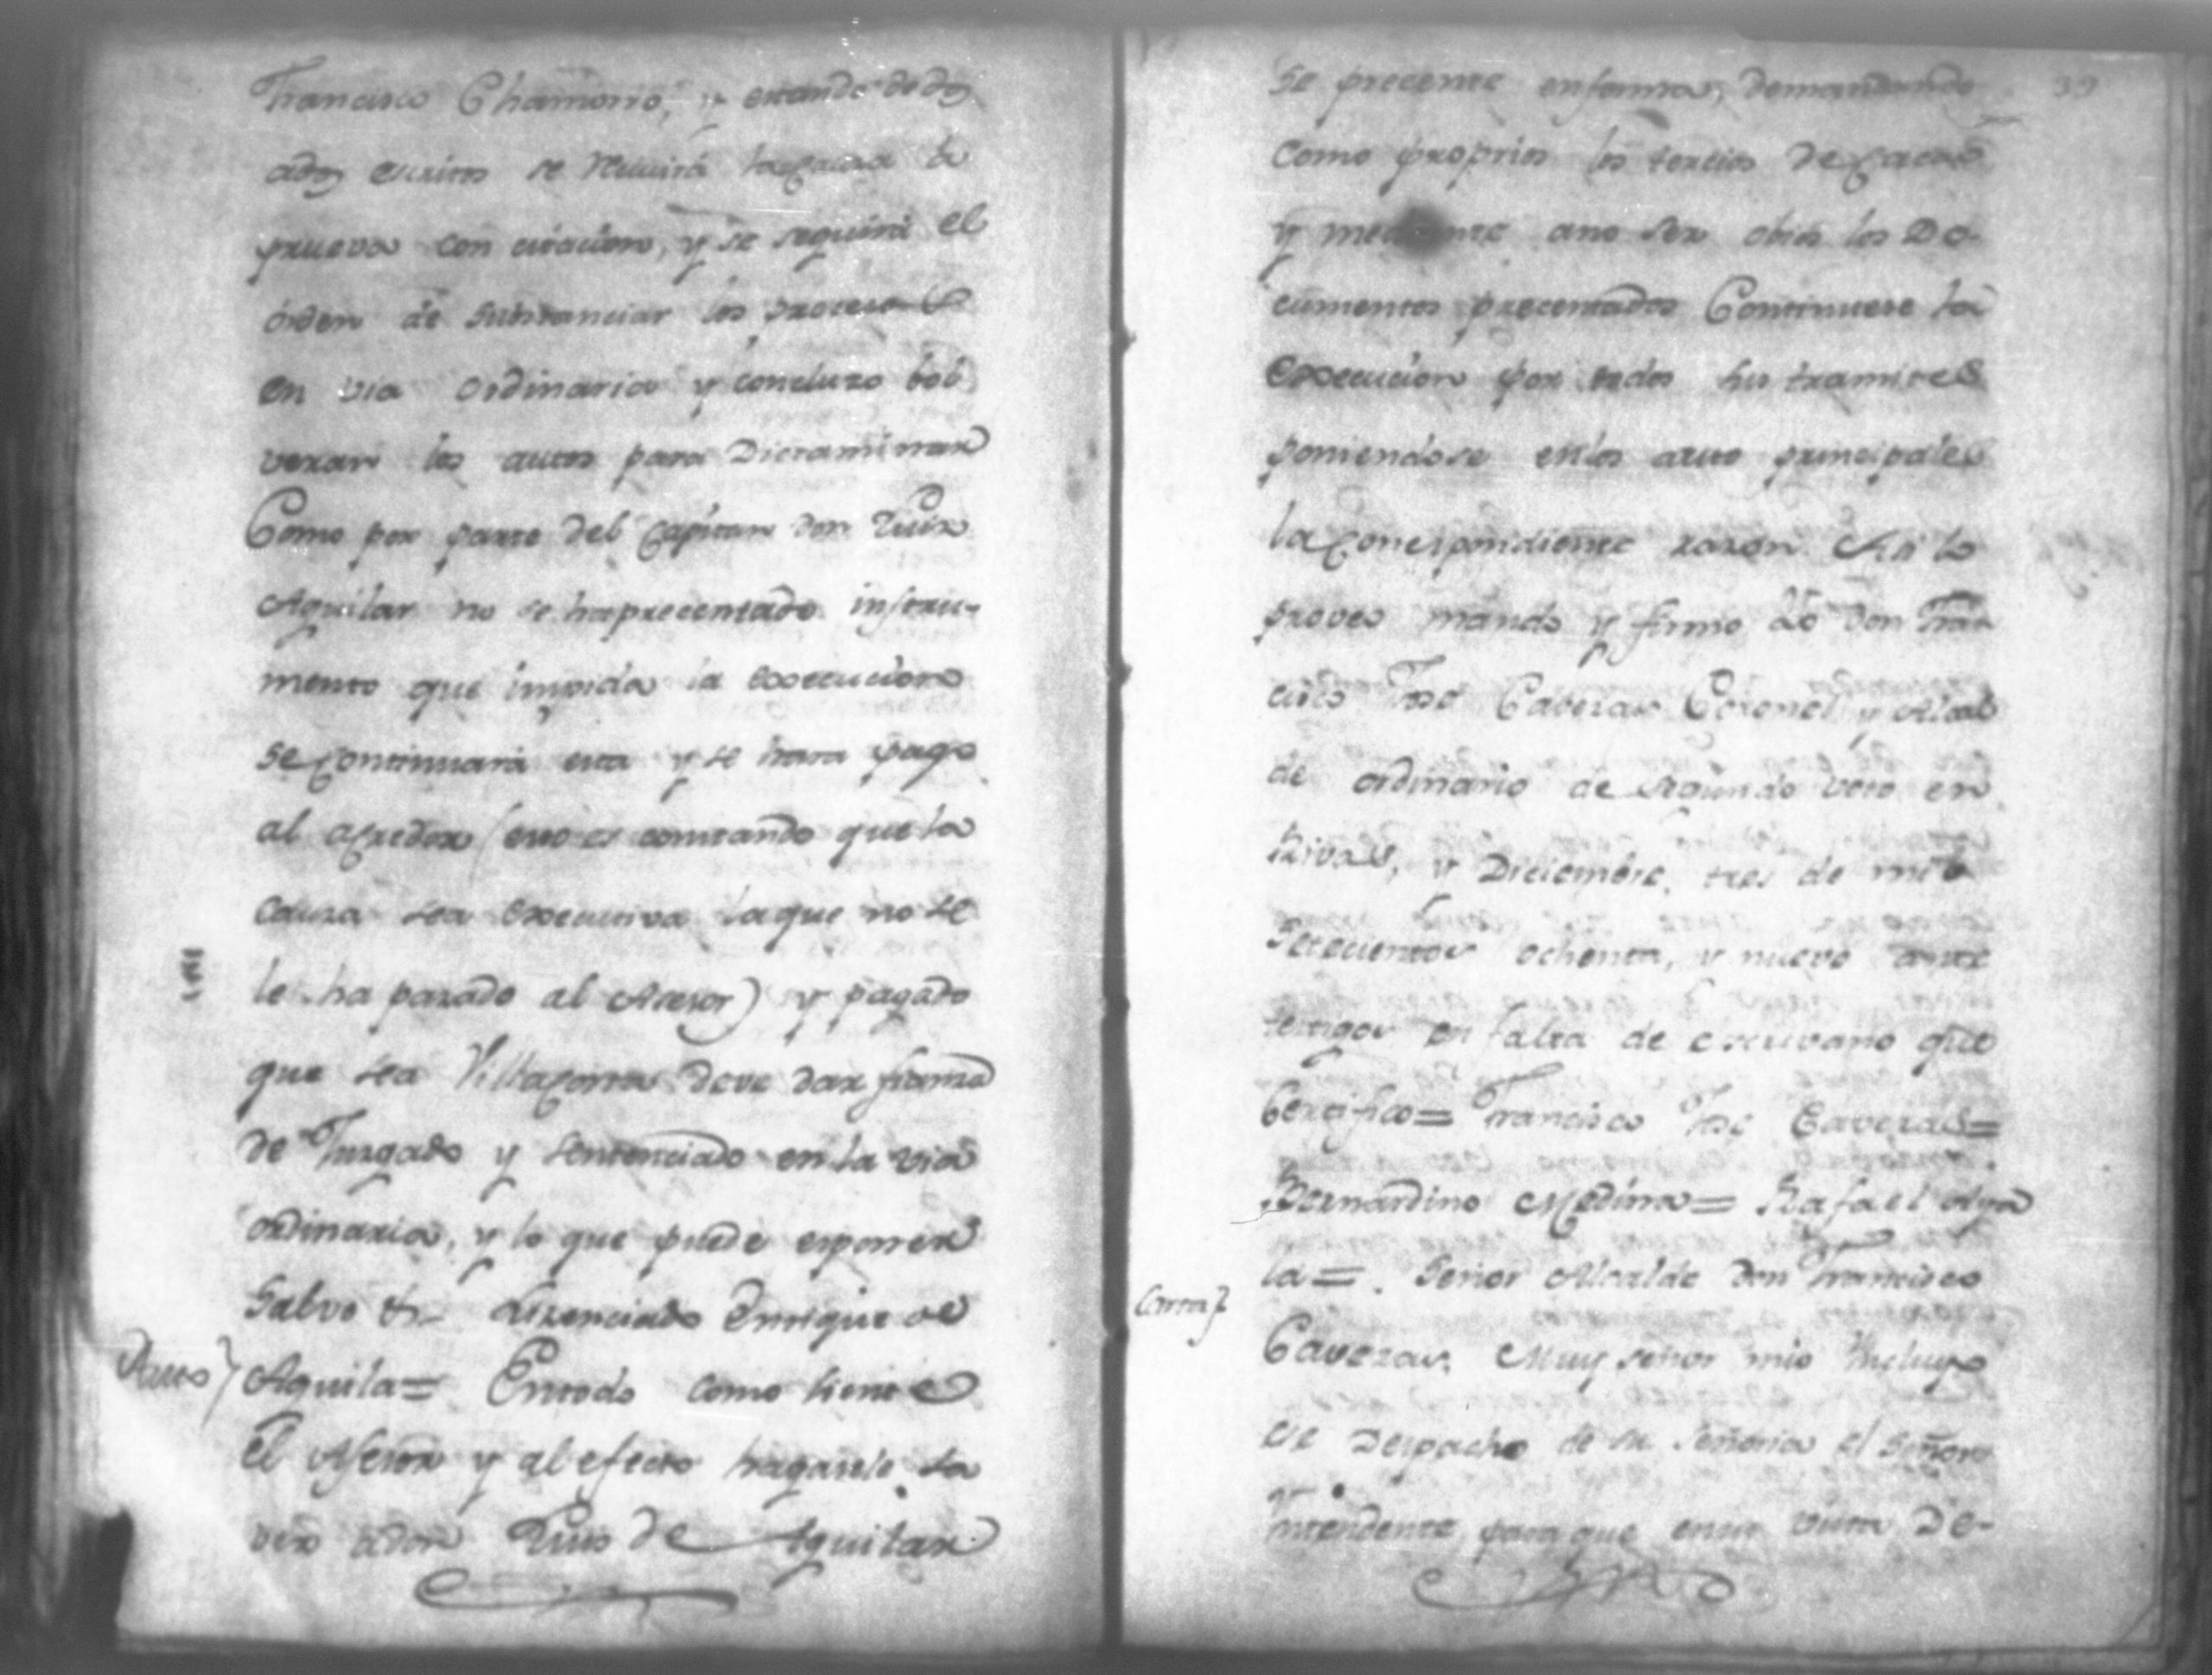 Francisco Chamorro, y estando de dos
ados escritos se recivirá la causa à
prueva con citacion, y se seguirá el
órden de substanciar los procesos
en via ordinaria y concluzo bol
veran los autos para Dictaminar
Como por parte del Capitan don Luis
Aguilar no se ha precentado instru-
mento que impida la execucion
se continuará esta y se hara pago
al acredor (esto es constando que la
causa sea executiva la que no se
le ha pazado al Acesor) y pagado
que sea Villacorta deve dar fianza
de Juzgado y sentenciado en la via
ordinaria, y lo que puede esponer
Salvo &. Lizenciado Enrrique de
Auto) Aguila= Entodo como siente
el Asesor y al efecto hagasele sa
ver adon Luis de Aguilar
39
Se precente enforma, Demandando
Como proprios los tercios de Cacao
y mediante ano ser obios los Do-
cumentos precentados Continuese la
execucion por todos sus tramites
poniendose enlos autos principales
la correspondiente razon. Asi lo
proveo mando y firmo Yo Don Fran
cisco José Caveras Coronel y Alcal
de ordinario de segundo voto en
Rivas, y Diciembre, tres de mil
Setecientos ochenta, y nueve ante
testigos en falta de escrivano que
Certifico= Francisco José Caveras=
Bernardino Medina= Rafael Aya
la=. Señor Alcalde Don Francisco
Carta) Caveras. Muy señor mio Incluyo
ese Despacho de su señoria el Señor
Intendente, para que ensu vista De-